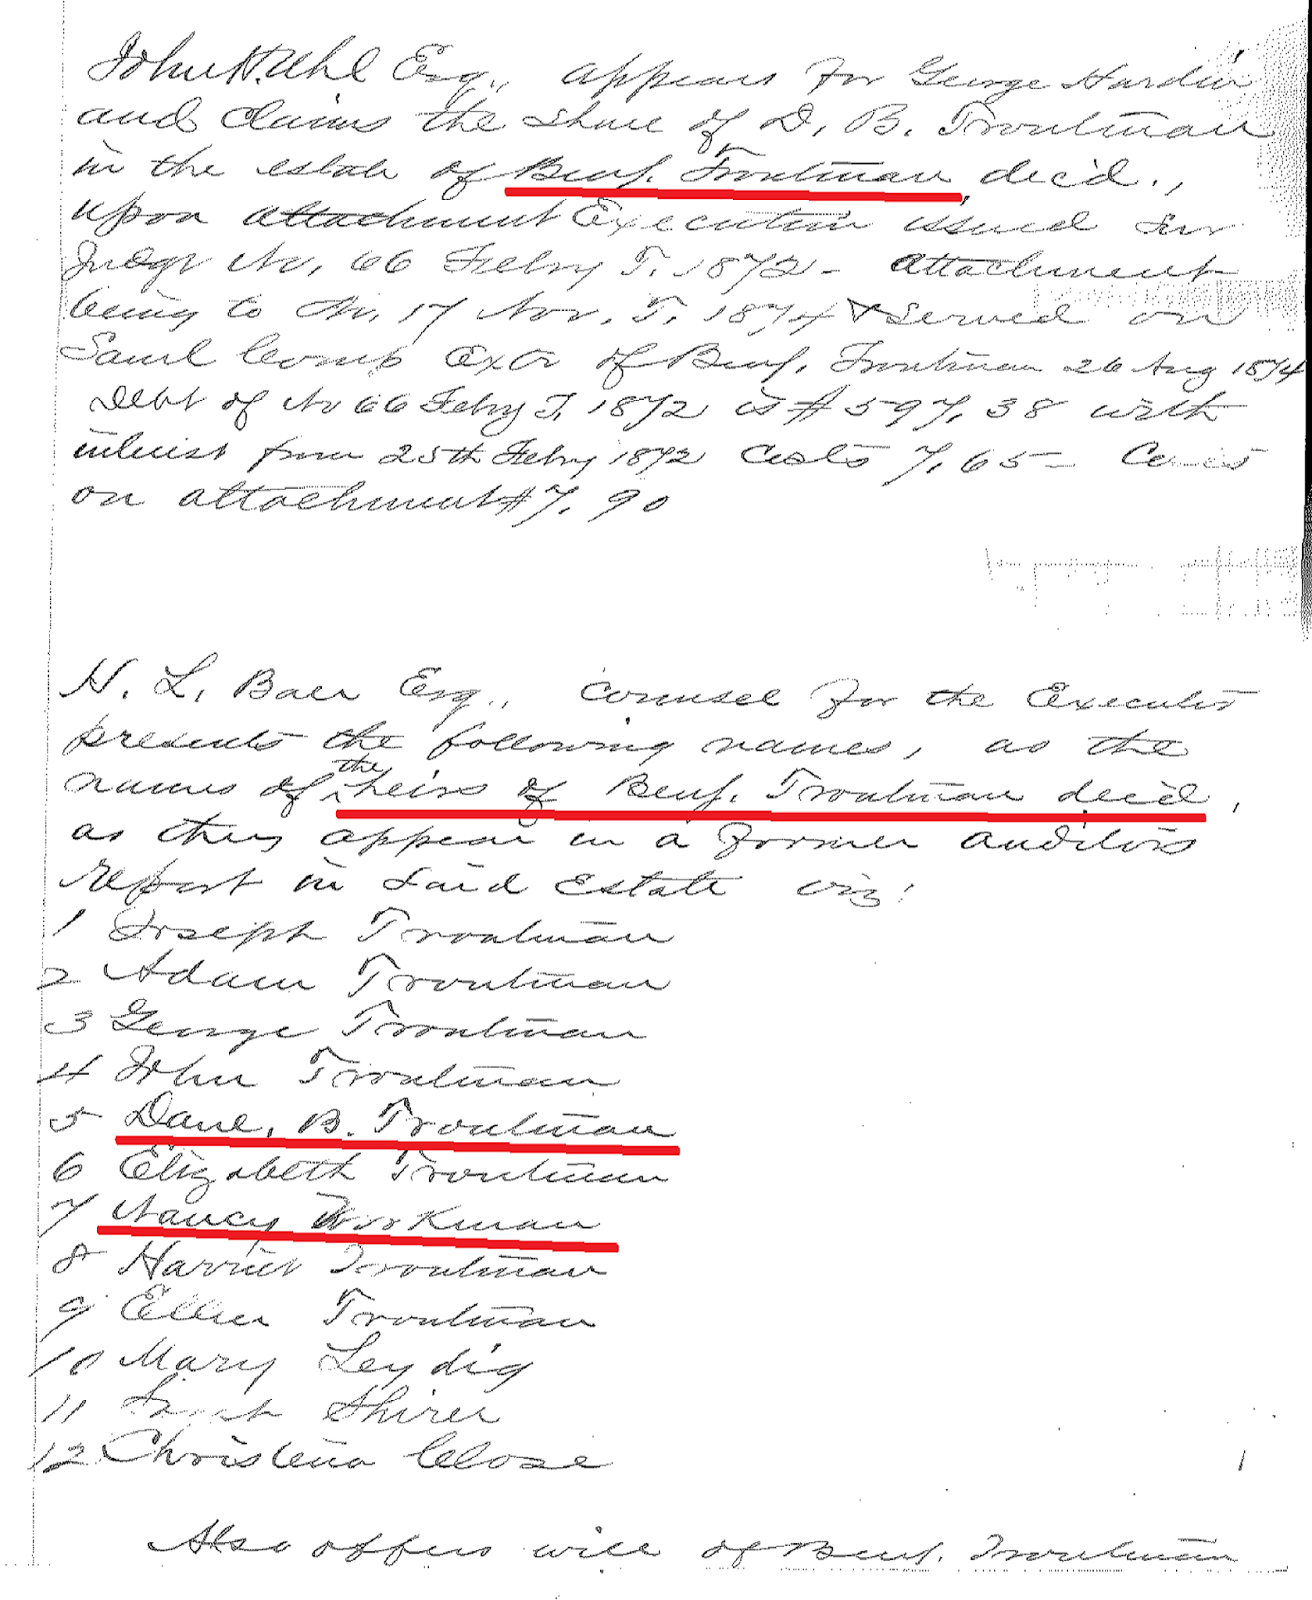 John H. Uhl Esq., appears for George Hardin
and claims the share of D. B. Troutman
in the estate of Benj. Troutman dec'd.,
upon attachment Execution issued Sur
Judgt No. 66 Feby T. 1872 - attachment
being to No. 17 Nov. T. 1874 & served on
Saml Comp Exor of Benj. Troutman 26 Aug 1874
Debt of No 66 Feby T. 1872 is $597.38 with
interest from 25th Feby 1872 Costs 7.65 -
on attachment $7.90
H. L. Baer Esq., counsel for the Executor
presents the following names, as the
names of the heirs of Benj. Troutman dec'd,
as they appear in a former auditors
report in said Estate viz:
1 Joseph Troutman
2 Adam Troutman
3 George Troutman
4 John Troutman
5 Danl. B. Troutman
6 Elizabeth Troutman
7 Nancy Workman
8 Harriet Troutman
9 Ellen Troutman
10 Mary Leydig
11 Shirer
12 Christena Close
Also offers will of Benj. Troutman